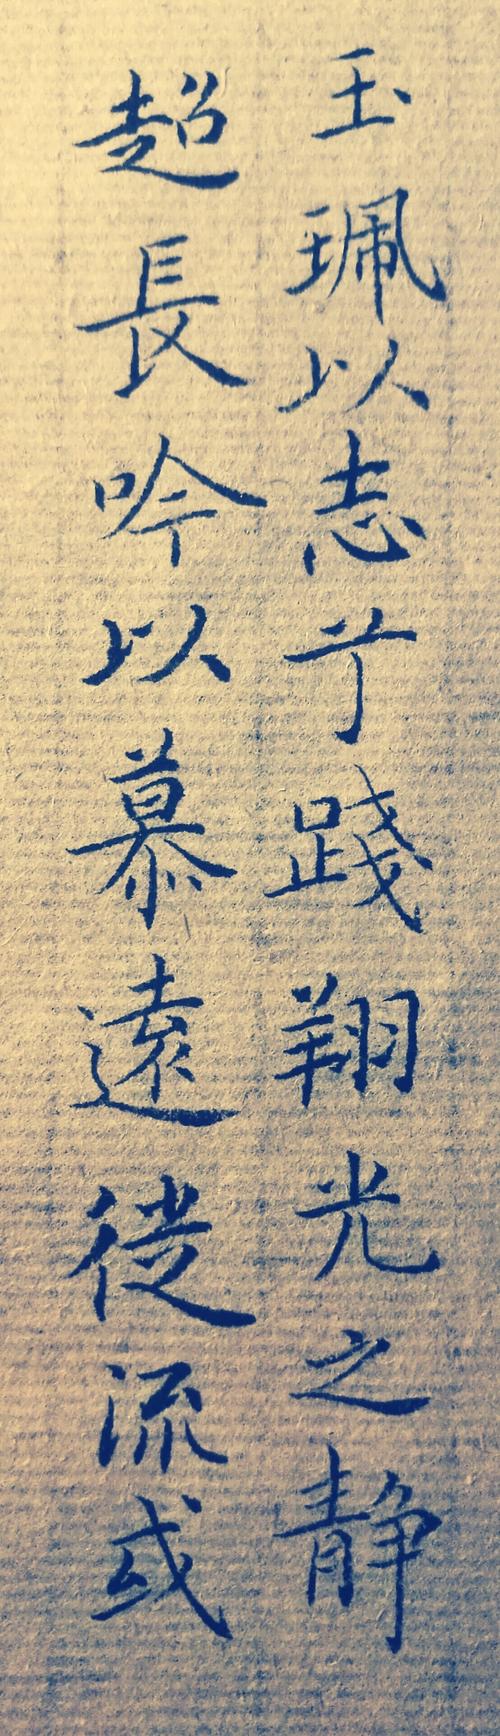 玉珮以志兮踐翔光之静
超長吟以慕遠従流或